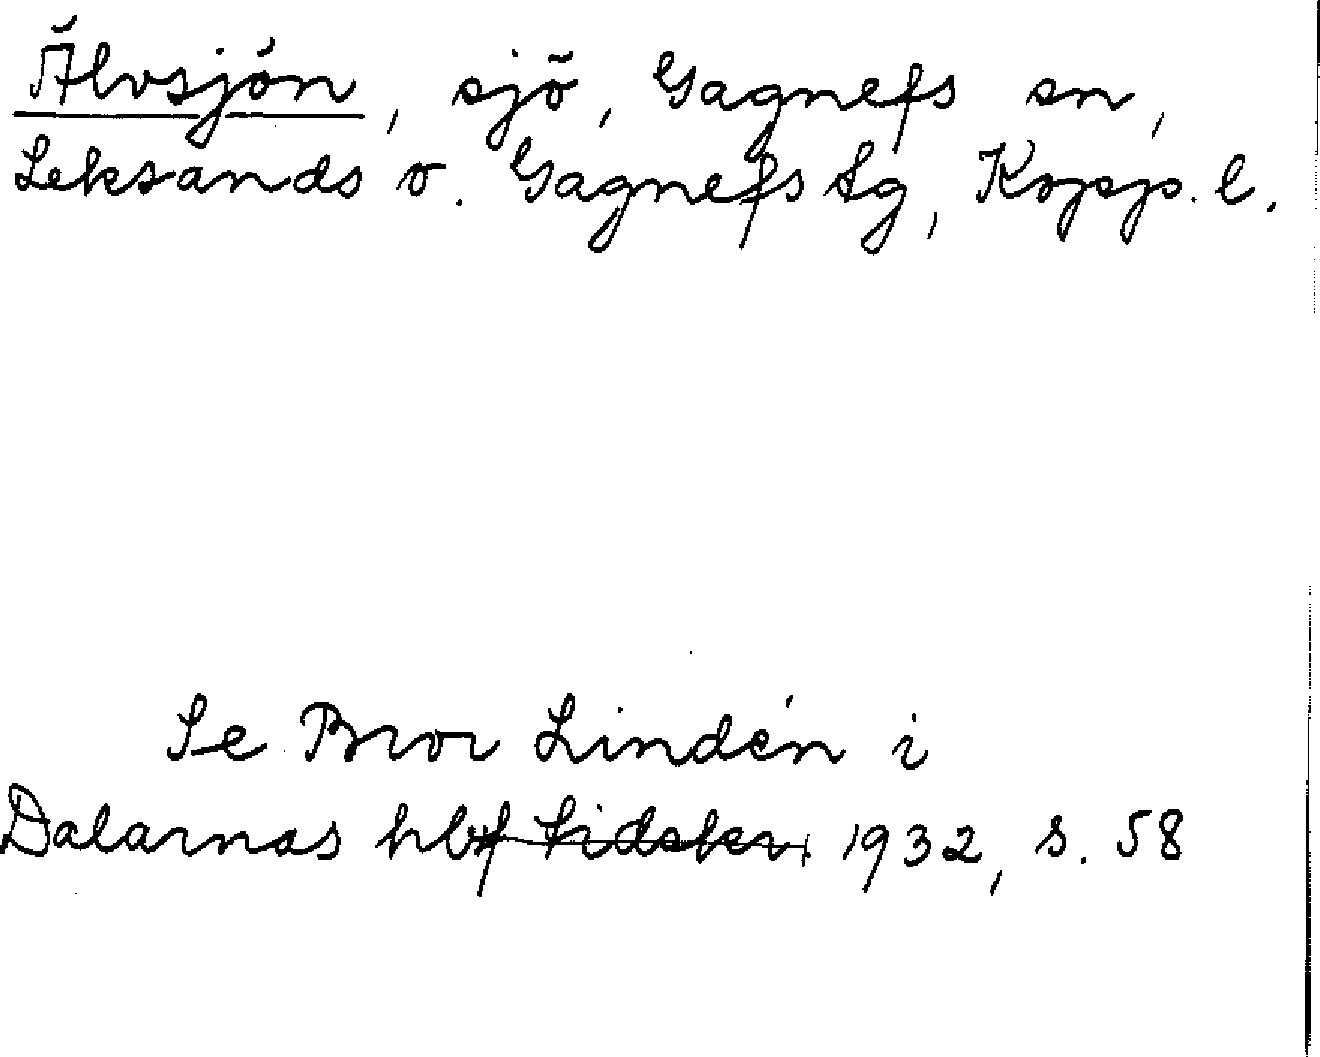 Älvsjön, sjö, Gagnefs sn,
Leksands o. Gagnefs tg, Kopp. l.
Se Bror Lindén i
Dalarnas hbf tidskr. 1932, s. 58